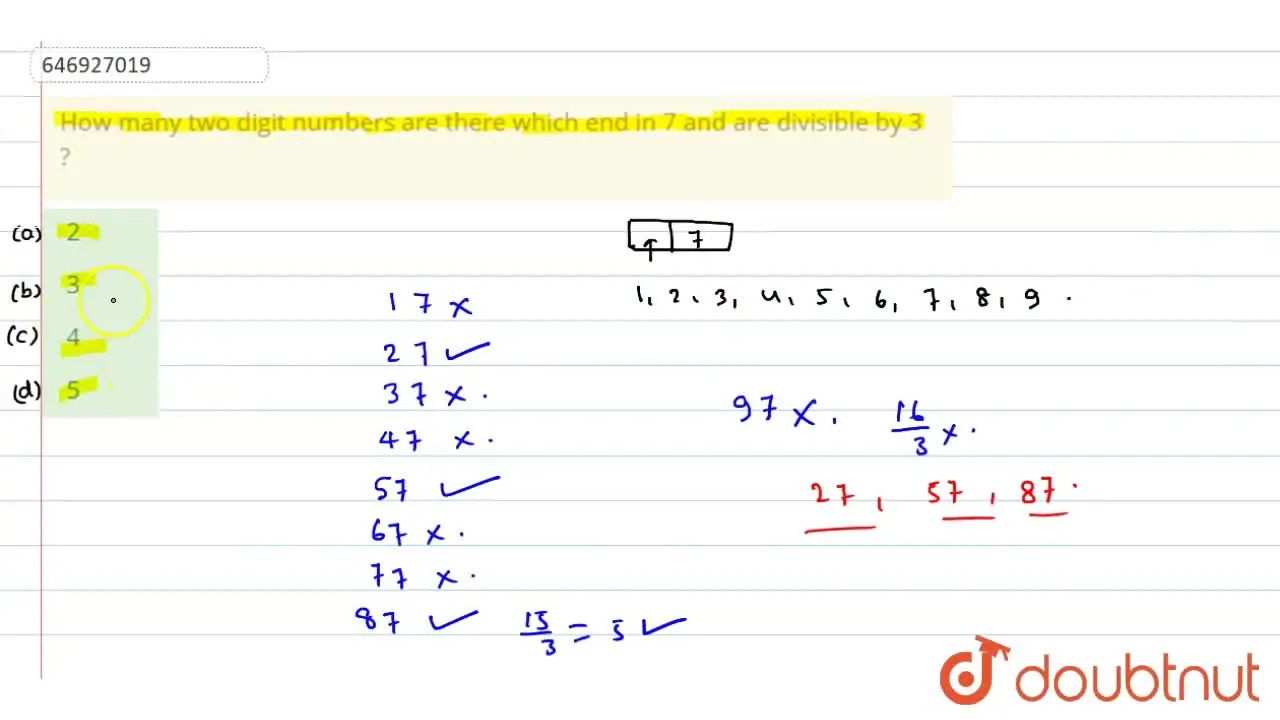 646927019
How many two digit numbers are there which end in 7 and are divisible by 3
?
(a) 2
(b) 3
(c) 4
(d) 5
7
1, 2, 3, 4, 5, 6, 7, 8, 9.
17 x
27 ✓
37 x.
47 x.
57 ✓
67 x.
77 x.
87 ✓ 15/3 = 5 ✓
97 x. 16/3 x.
27, 57, 87.
doubtnut